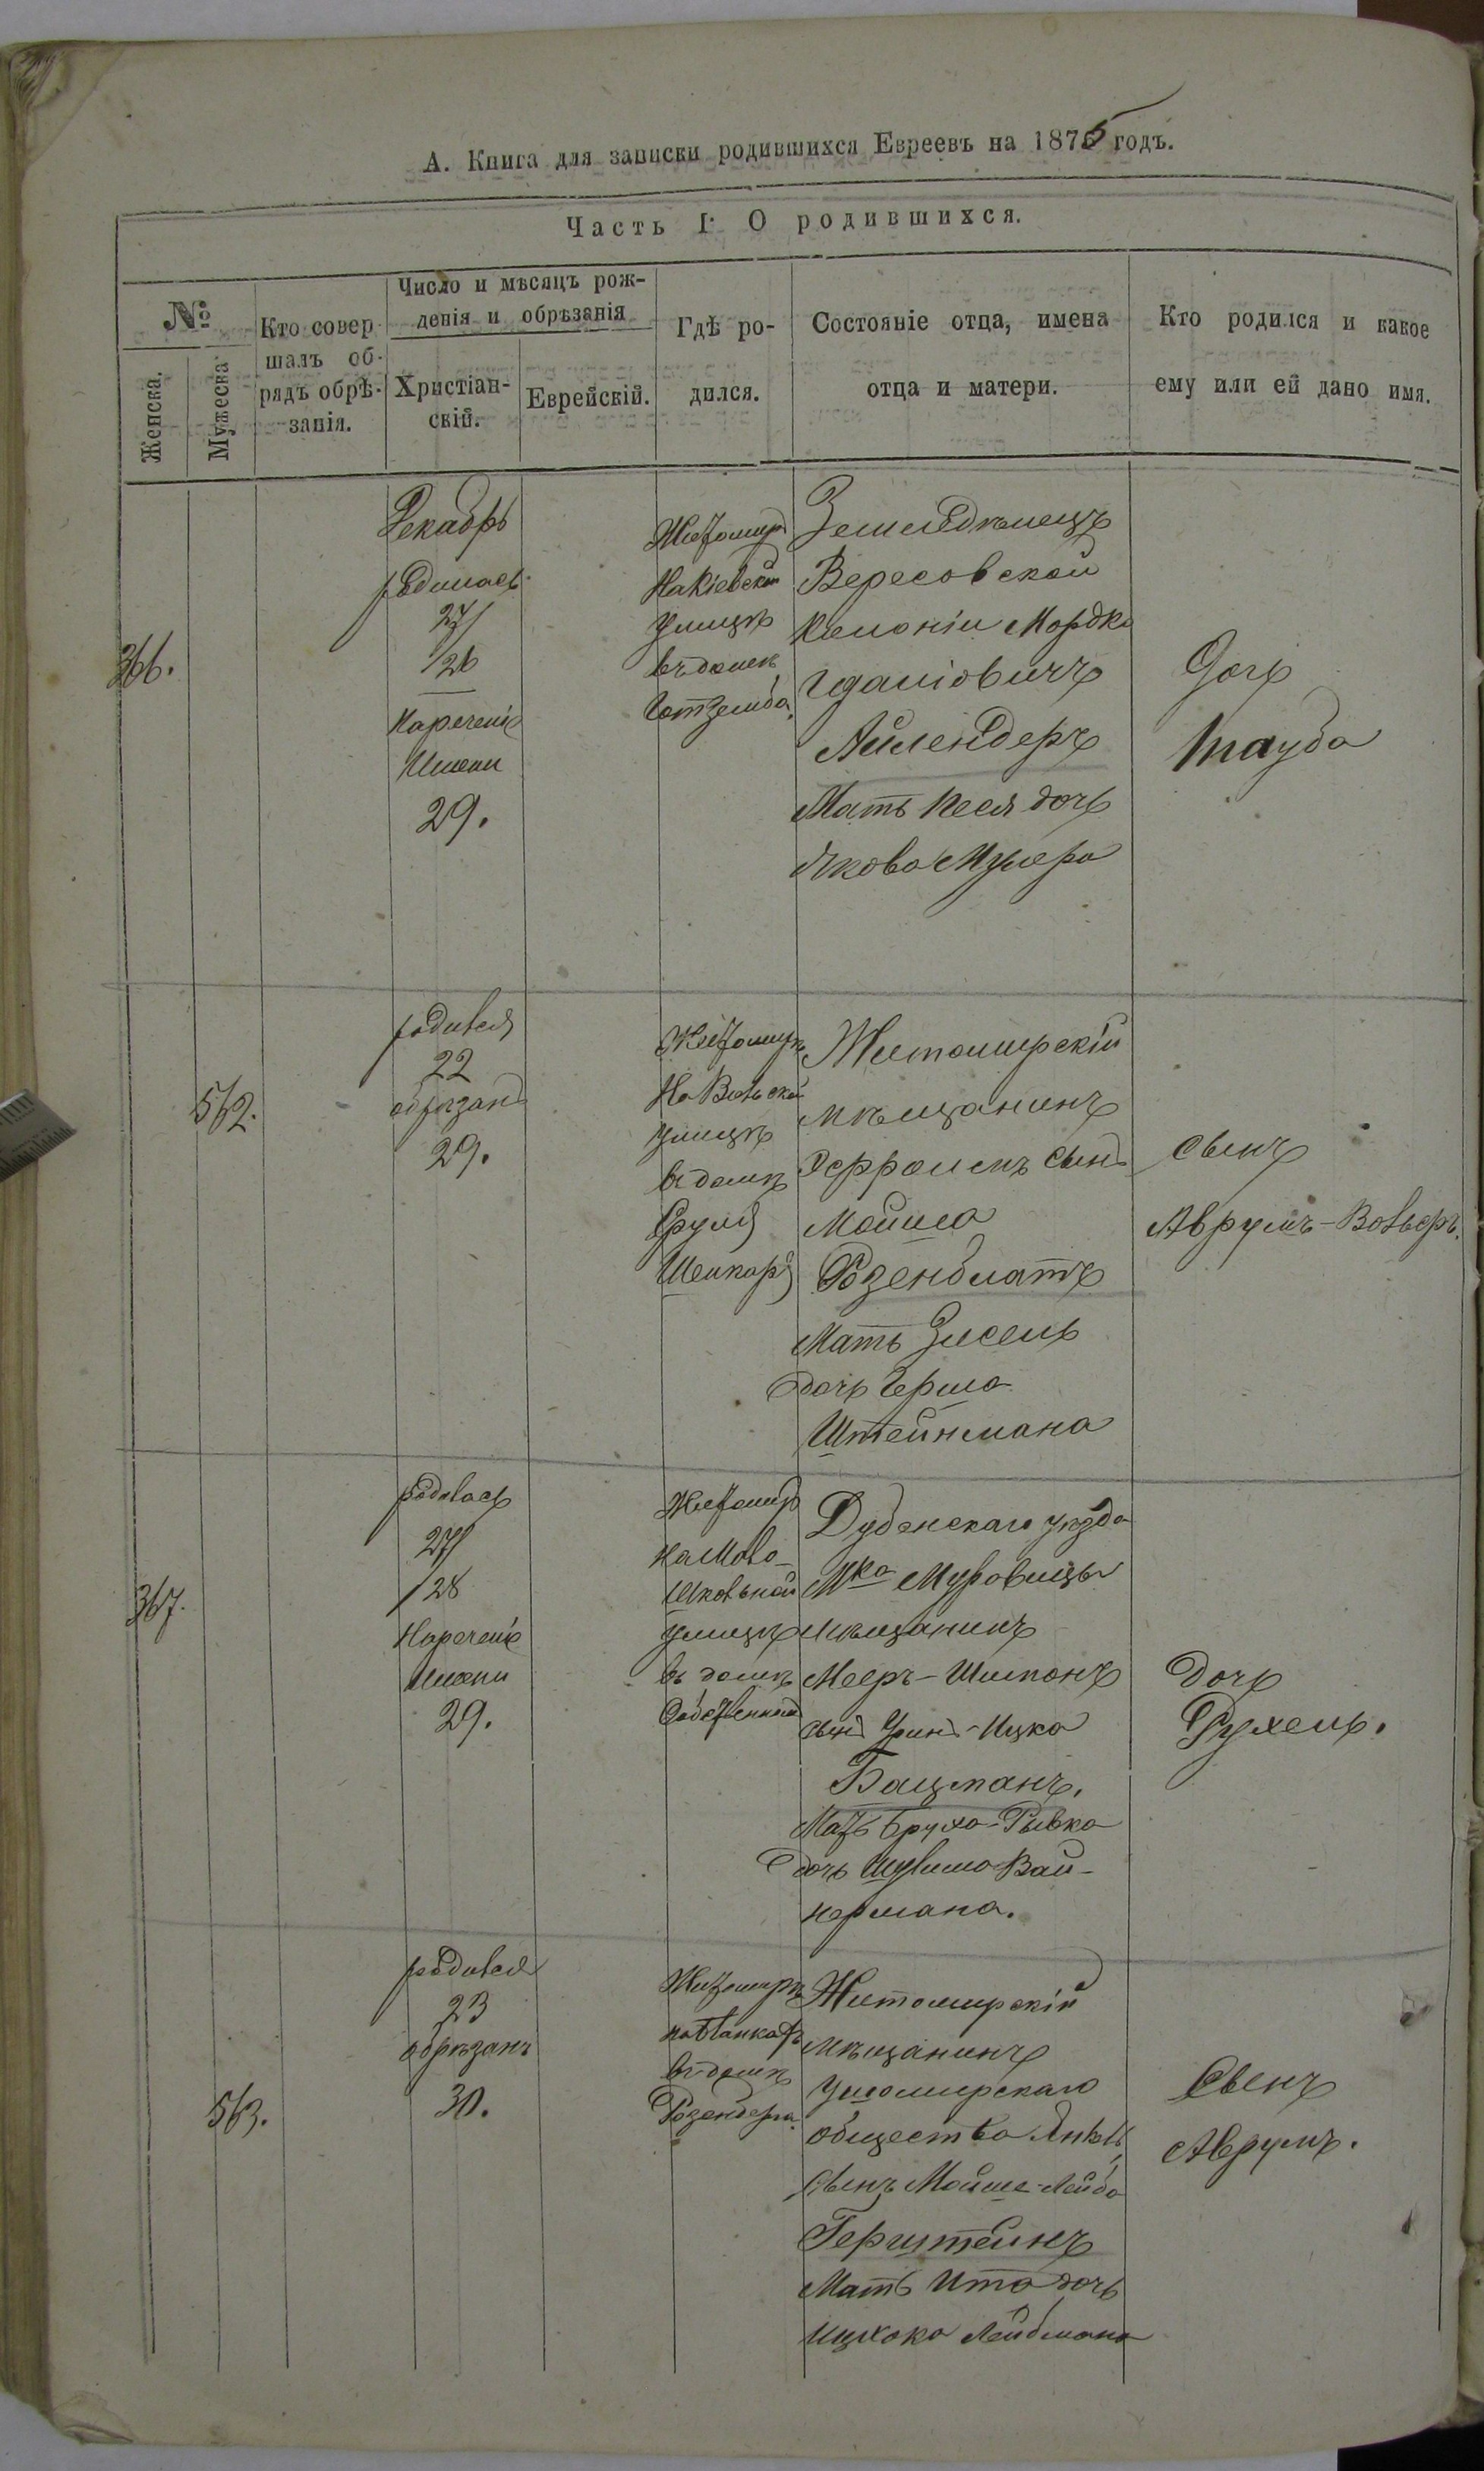 А. Книга для записки родившихся Евреевъ на 1875 годъ.
Часть I. О родившихся.
№
Женска.
Мужеска
Кто совер-
шалъ об-
рядъ обрѣ-
занія.
Число и мѣсяцъ рож-
денія и обрѣзанія
Христіан-
скій.
Еврейскій.
Гдѣ ро-
дился.
Состояніе отца, имена
отца и матери.
Кто родился и какое
ему или ей дано имя.
366.
Декабрь
родилась
27/
/28
Наречені
Имени
29.
Житомир
На Кіевской
улицѣ
въ домѣ
Готземба.
Земледѣлецъ
Вересовской
Колоніи Мордко
Гдаліовичъ
Айлендеръ
Мать Песя дочь
Якова Мулера
Дочь
Тауба
562.
родился
22
обрѣзанъ
29.
Житомиръ
На Вильской
улицѣ
въ домѣ
Сруля
Шенкаря
Житомирскій
мѣщанинъ
Эфроимъ сынъ
Мойша
Розенблатъ
Мать Зисель
дочь Герша
Штейнмана
Сынъ
Аврумъ-Вольфъ.
367.
родилась
27/
/28
Наречені
Имени
29.
Житомир
на Мало-
Школьной
улицѣ
въ домѣ
Собственном
Дубенскаго уѣзда
Мка Муровицы
мѣщанинъ
Мееръ-Шимонъ
сынъ Ицко
Бацманъ.
Мать Бруха-Рывка
дочь Вай-
нермана.
Дочь
Рухель.
563.
родился
23
обрѣзанъ
30.
Житомиръ
въ домѣ
Житомирскій
мѣщанинъ
Ушомирскаго
общества Янкель
сынъ Мойше-Лейба
Герштейнъ
Мать Ита дочь
Ицхока Лейбмана
Сынъ
Аврумъ.